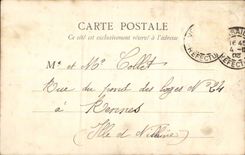 CARTE POSTALE
Ce côté est exclusivement réservé à l'adresse
Mr et Me Collet
Rue du pont des loges No 24
à Rennes
(Ille et Vilaine)